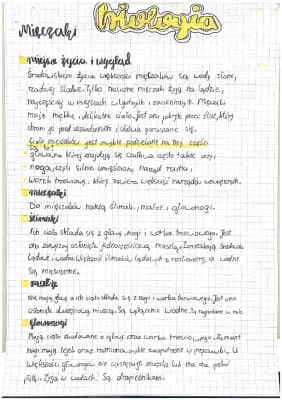 biologia
Mięczaki
miejsce życia i wygląd
Środowiskiem życia większości mięczaków są wody słone,
rzadziej słodkie. Tylko nieliczne mięczaki żyją na lądzie,
najczęściej w miejscach wilgotnych i zacienionych. Mięczaki
mają miękkie, delikatne ciało. Jest ono pokryte przez śluz, który
chroni je przed uszkodzeniem i ułatwia poruszanie się.
Ciało mięczaków jest zwykle podzielone na trzy części
Są to:
głowa, na której znajdują się czułki, a często także oczy,
noga, czyli silnie umięśniony narząd ruchu,
worek trzewiowy, który zawiera większość narządów wewnętrznych.
mięczaki
Do mięczaków należą ślimaki, małże i głowonogi.
ślimaki
Ich ciało składa się z głowy, nogi i worka trzewiowego. Jest
ono zazwyczaj osłonięte jednoczęściową muszlą. Zamieszkują środowiska
lądowe i wodne. Większość ślimaków lądowych to roślinożercy, a wodne
są mięsożerne.
małże
Nie mają głowy, a ich ciało składa się z nogi i worka trzewiowego. Jest ono
osłonięte dwuczęściową muszlą. Są wyłącznie wodne. Są zagrzebane w
głowonogi
Mają ciało zbudowane z głowy oraz worka trzewiowego. Zamiast
nogi mają lejek oraz ramiona, zwykle zaopatrzone w przyssawki. U
większości głowonogów nie występuje muszla lub ma ona postać
płytki. Żyją w wodach. Są drapieżnikami.